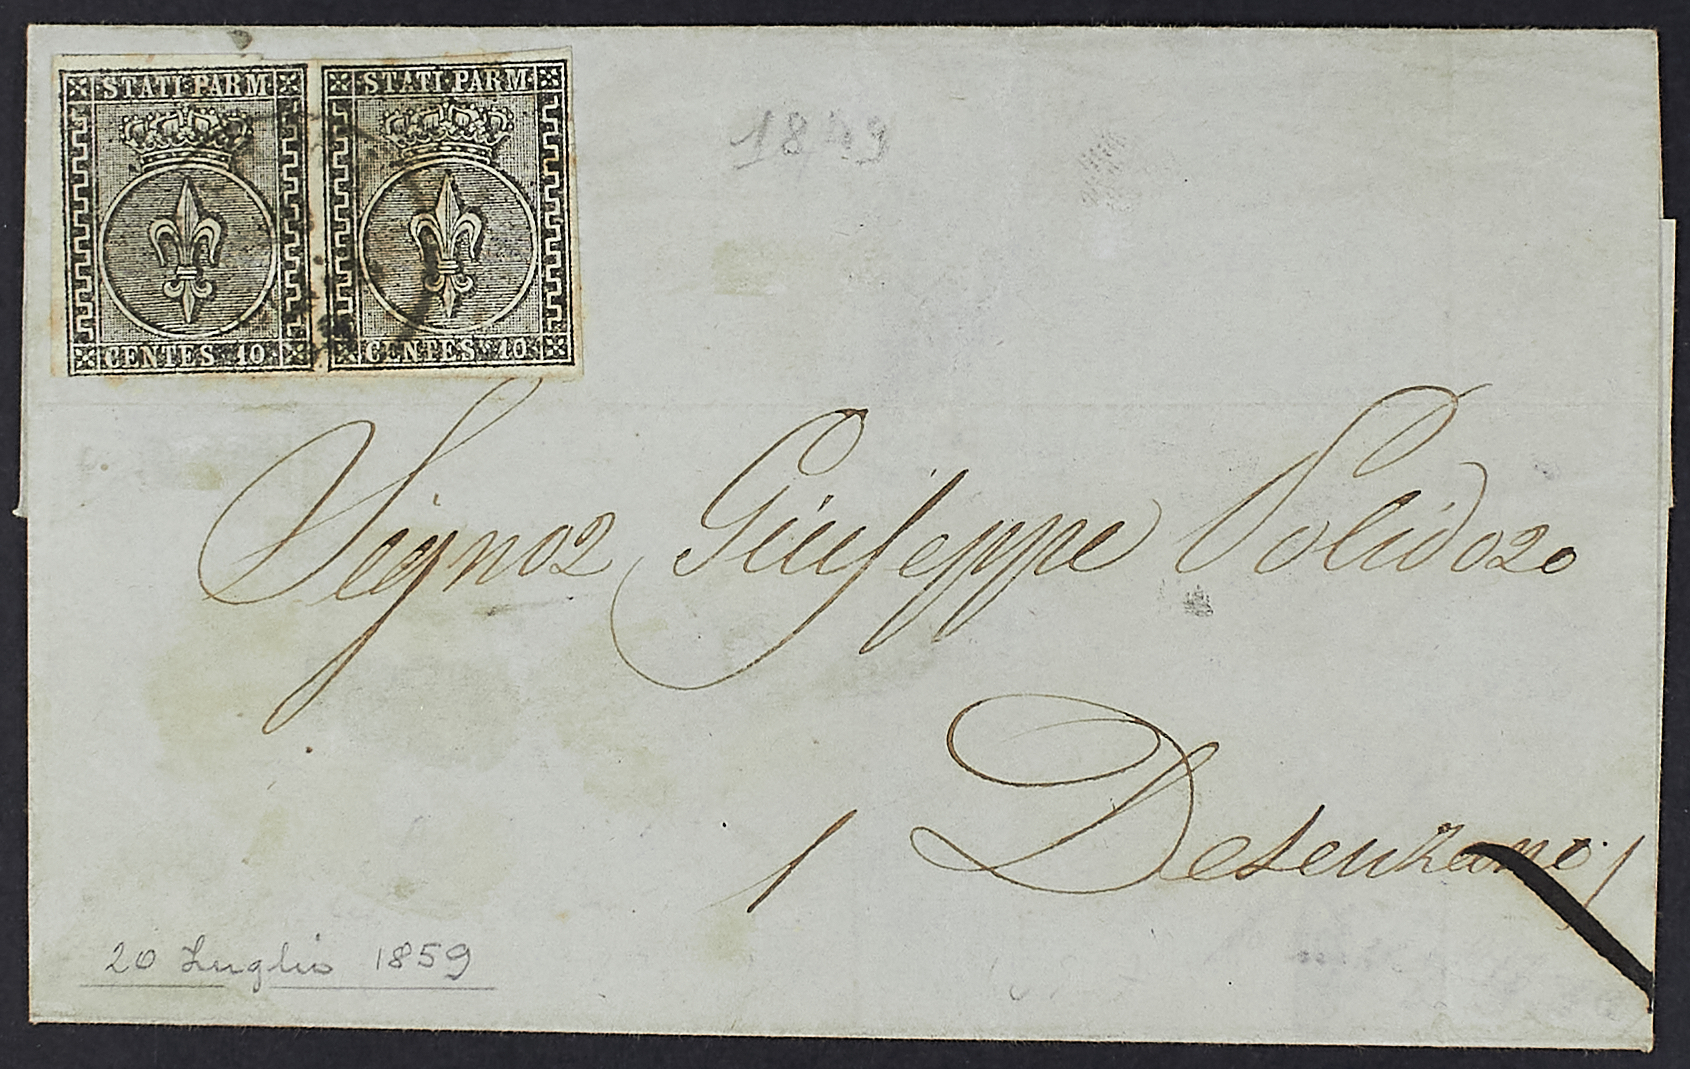 STATI PARM STATI PARM
CENTES 10 CENTES 10
Signor Giuseppe Polidoro
Desenzano
20 Luglio 1859